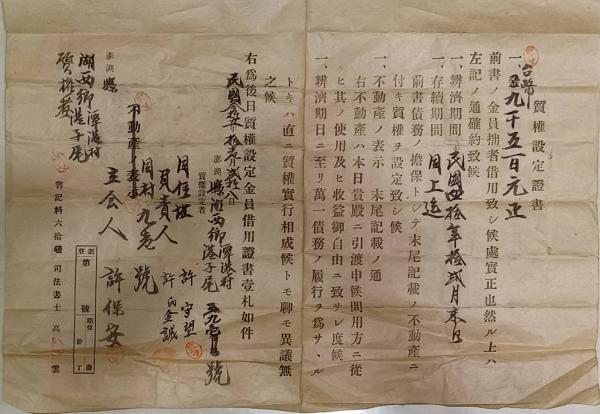 質權設定證書
一、台幣 九千五百元正
前書ノ金員拙者借用致シ候處實正也然ル上ハ
左記ノ通確約致候
一、辨濟期間 民國四拾年拾弍月末日
一、存續期間 同上迄
前書債務ノ擔保トシテ末尾記載ノ不動產ニ
付キ質權ヲ設定致シ候
一、不動產ノ表示 末尾記載ノ通
右不動產ハ本日貴殿ニ引渡申候間用方ニ從
ヒ其ノ使用及ヒ收益御自由ニ致サレ度候
一、辨濟期日ニ至リ萬一債務ノ履行ヲ爲サヽル
トキハ直ニ質權實行相成候トモ聊モ異議無
之候
右爲後日質權設定金員借用證書壹札如件
民國
澎湖縣湖西鄉潭港村港子尾 號
質權設定者
許守望
同住址
許
同村 九老 號
立會人 許保安
不動產ノ表示
澎湖縣
湖西鄉潭港村
港子尾
登記
第 號
順位 番
書記料六拾 司法書士 高 雲